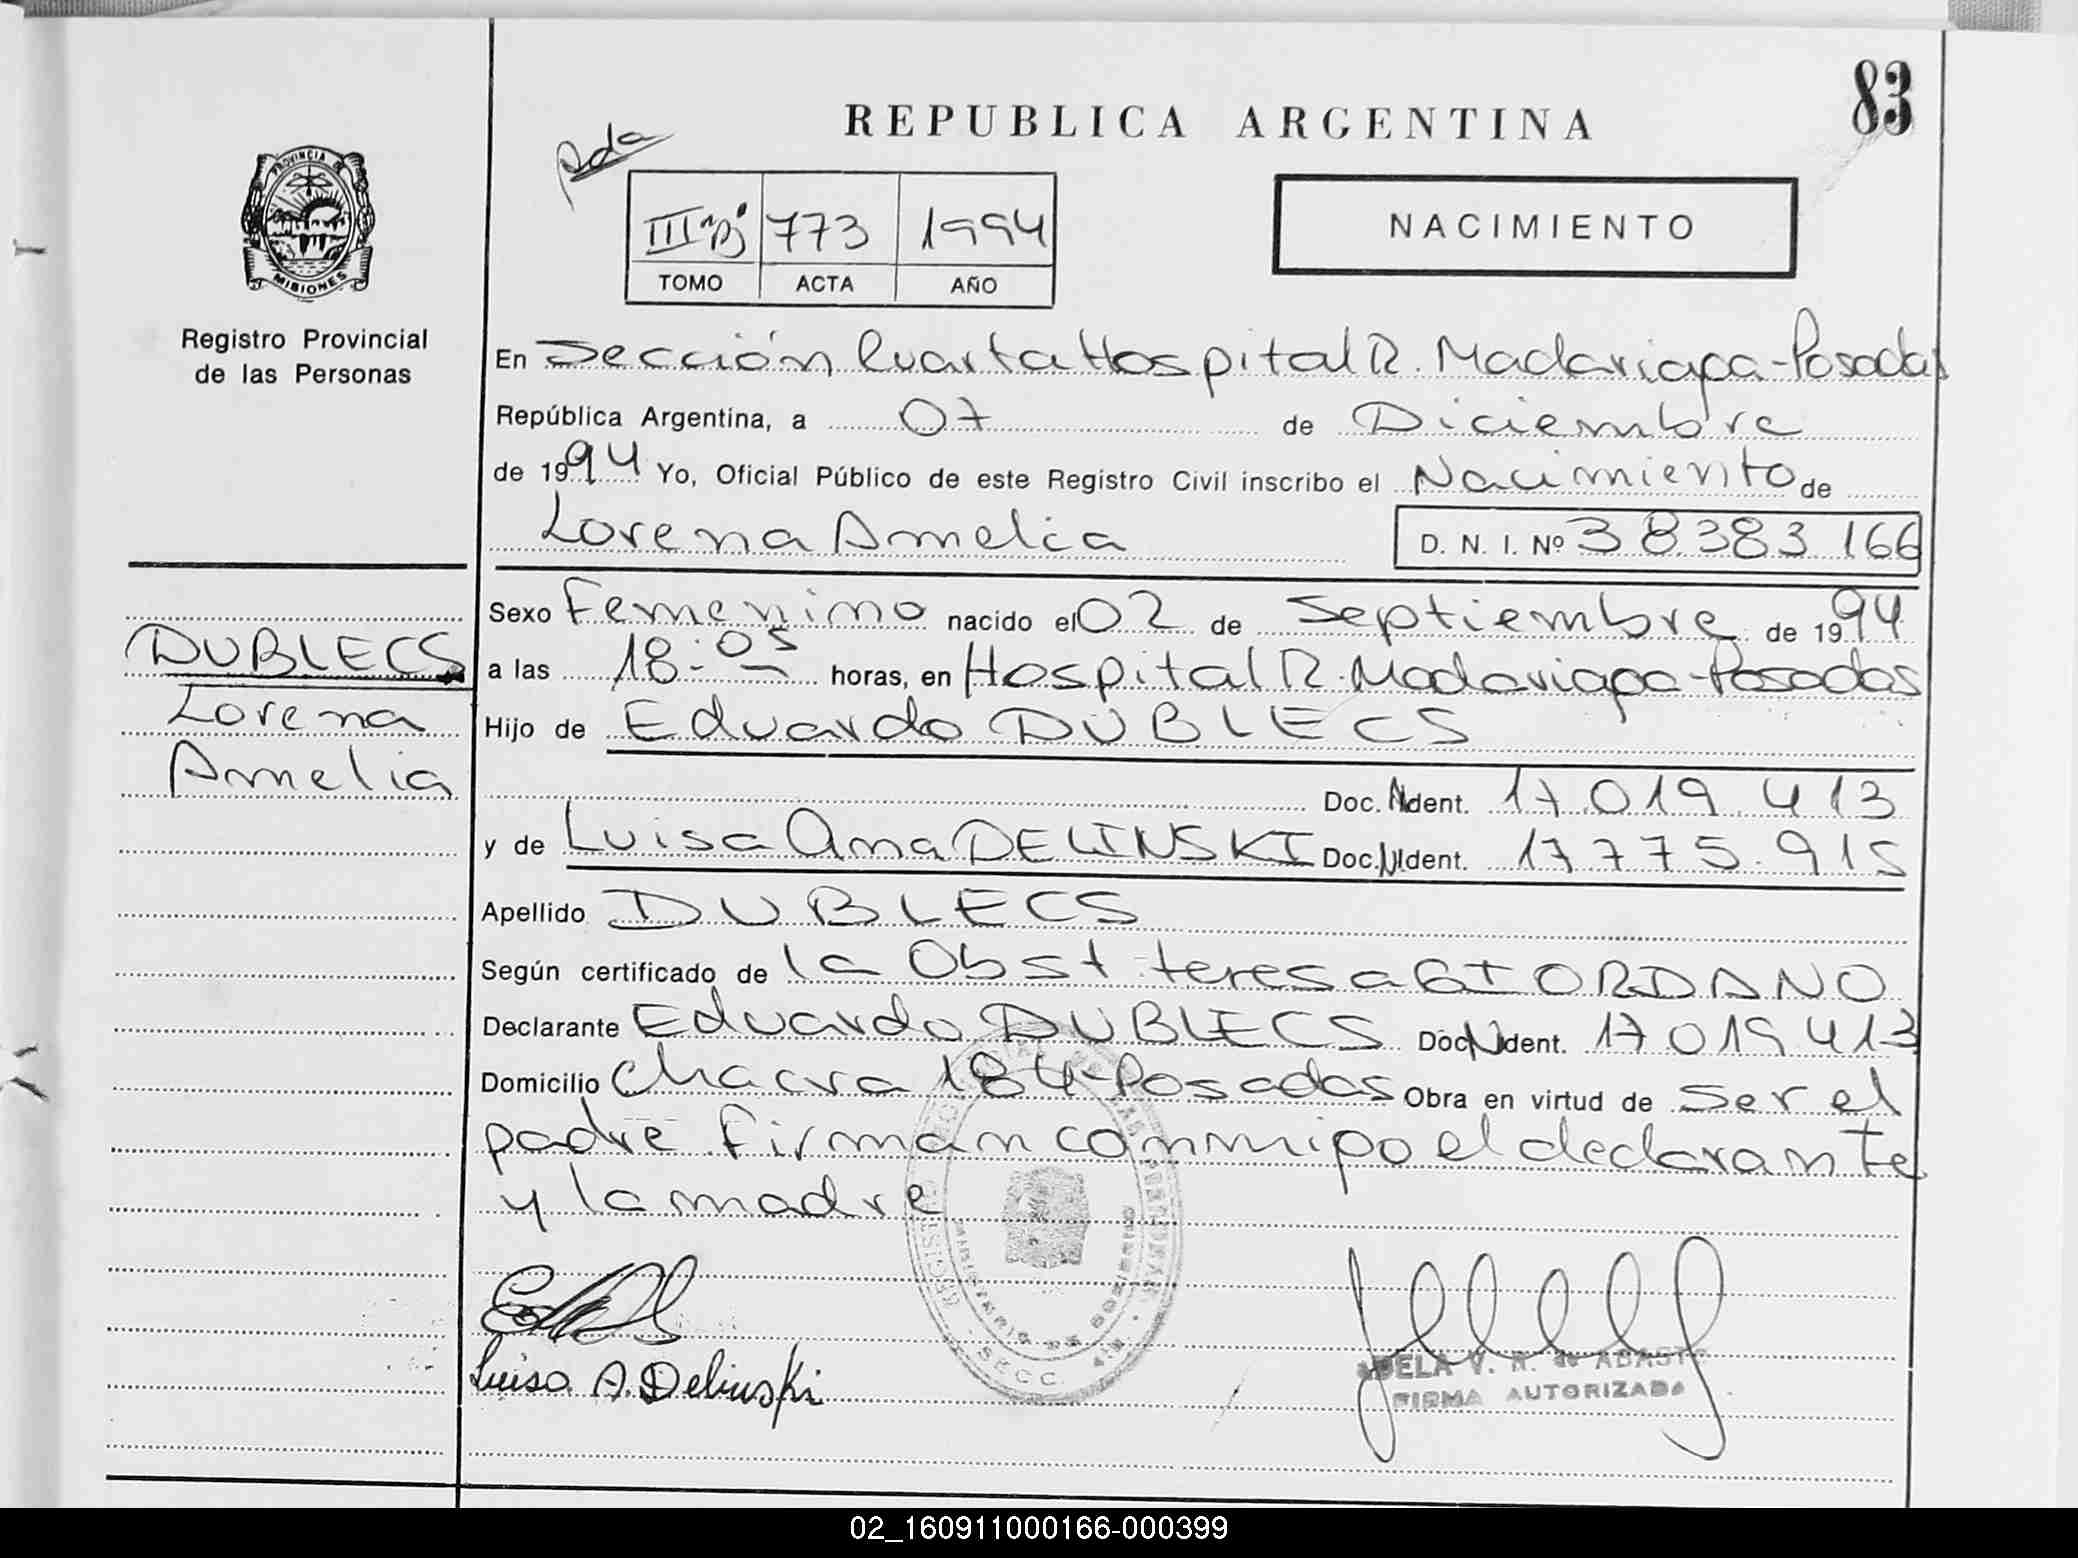 83
REPUBLICA ARGENTINA
PROVINCIA DE
MISIONES
III "B" 773 1994
TOMO ACTA AÑO
NACIMIENTO
Registro Provincial
de las Personas
En Sección Cuarta Hospital R. Madariaga-Posadas
República Argentina, a 07 de Diciembre
de 1994 Yo, Oficial Público de este Registro Civil inscribo el Nacimiento de
Lorena Amelia D. N. I. Nº 38383166
Sexo Femenino nacido el 02 de Septiembre de 1994
a las 18:05 horas, en Hospital R. Madariaga-Posadas
DUBLECS
Lorena
Amelia
Hijo de Eduardo DUBLECS
Doc. N Ident. 17.019.413
y de Luisa Ana DELINSKI Doc. N Ident. 17775.915
Apellido DUBLECS
Según certificado de la Obst. teresa GIORDANO
Declarante Eduardo DUBLECS Doc N Ident. 17019413
Domicilio Chacra 184-Posadas Obra en virtud de ser el
padre. Firman conmigo el declarante
y la madre
Luisa A. Delinski
ADELA V. R. de
FIRMA AUTORIZADA
MINISTERIO DE GOBIERNO
SECC.
02_160911000166-000399